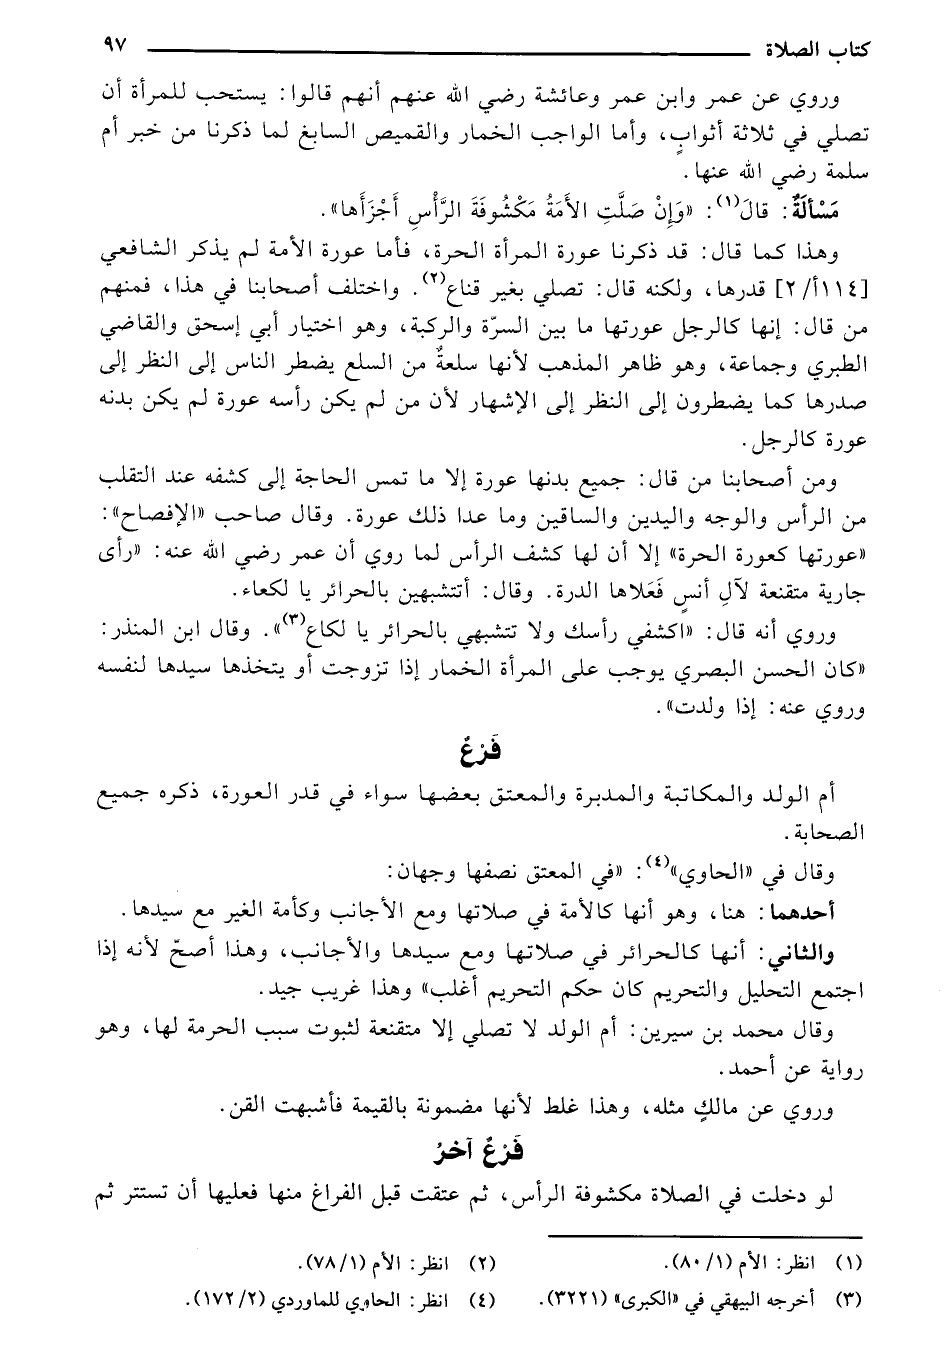 كتاب الصلاة ٩٧
وروي عن عمر وابن عمر وعائشة رضي الله عنهم أنهم قالوا: يستحب للمرأة أن
تصلي في ثلاثة أثوابٍ، وأما الواجب الخمار والقميص السابغ لما ذكرنا من خبر أم
سلمة رضي الله عنها.
مَسْأَلَةٌ: قالَ(١): «وَإِنْ صَلَّتِ الأَمَةُ مَكْشُوفَةَ الرَّأْسِ أَجْزَأَها».
وهذا كما قال: قد ذكرنا عورة المرأة الحرة، فأما عورة الأمة لم يذكر الشافعي
[١١٤أ/ ٢] قدرها، ولكنه قال: تصلي بغير قناع(٢). واختلف أصحابنا في هذا، فمنهم
من قال: إنها كالرجل عورتها ما بين السرّة والركبة، وهو اختيار أبي إسحق والقاضي
الطبري وجماعة، وهو ظاهر المذهب لأنها سلعةٌ من السلع يضطر الناس إلى النظر إلى
صدرها كما يضطرون إلى النظر إلى الإشهار لأن من لم يكن رأسه عورة لم يكن بدنه
عورة كالرجل.
ومن أصحابنا من قال: جميع بدنها عورة إلا ما تمس الحاجة إلى كشفه عند التقلب
من الرأس والوجه واليدين والساقين وما عدا ذلك عورة. وقال صاحب «الإفصاح»:
«عورتها كعورة الحرة» إلا أن لها كشف الرأس لما روي أن عمر رضي الله عنه: «رأى
جارية متقنعة لآلِ أنسٍ فَعَلاها الدرة. وقال: أتتشبهين بالحرائر يا لكعاء.
وروي أنه قال: «اكشفي رأسك ولا تتشبهي بالحرائر يا لكاع(٣)». وقال ابن المنذر:
«كان الحسن البصري يوجب على المرأة الخمار إذا تزوجت أو يتخذها سيدها لنفسه
وروي عنه: إذا ولدت».
فَرْعٌ
أم الولد والمكاتبة والمدبرة والمعتق بعضها سواء في قدر العورة، ذكره جميع
الصحابة.
وقال في «الحاوي»(٤): «في المعتق نصفها وجهان:
أحدهما: هنا، وهو أنها كالأمة في صلاتها ومع الأجانب وكأمة الغير مع سيدها.
والثاني: أنها كالحرائر في صلاتها ومع سيدها والأجانب، وهذا أصحّ لأنه إذا
اجتمع التحليل والتحريم كان حكم التحريم أغلب» وهذا غريب جيد.
وقال محمد بن سيرين: أم الولد لا تصلي إلا متقنعة لثبوت سبب الحرمة لها، وهو
رواية عن أحمد.
وروي عن مالكٍ مثله، وهذا غلط لأنها مضمونة بالقيمة فأشبهت القن.
فَرْعٌ آخرُ
لو دخلت في الصلاة مكشوفة الرأس، ثم عتقت قبل الفراغ منها فعليها أن تستتر ثم
(١) انظر: الأم (١/ ٨٠). (٢) انظر: الأم (١/ ٧٨).
(٣) أخرجه البيهقي في «الكبرى» (٣٢٢١). (٤) انظر: الحاوي للماوردي (٢/ ١٧٢).